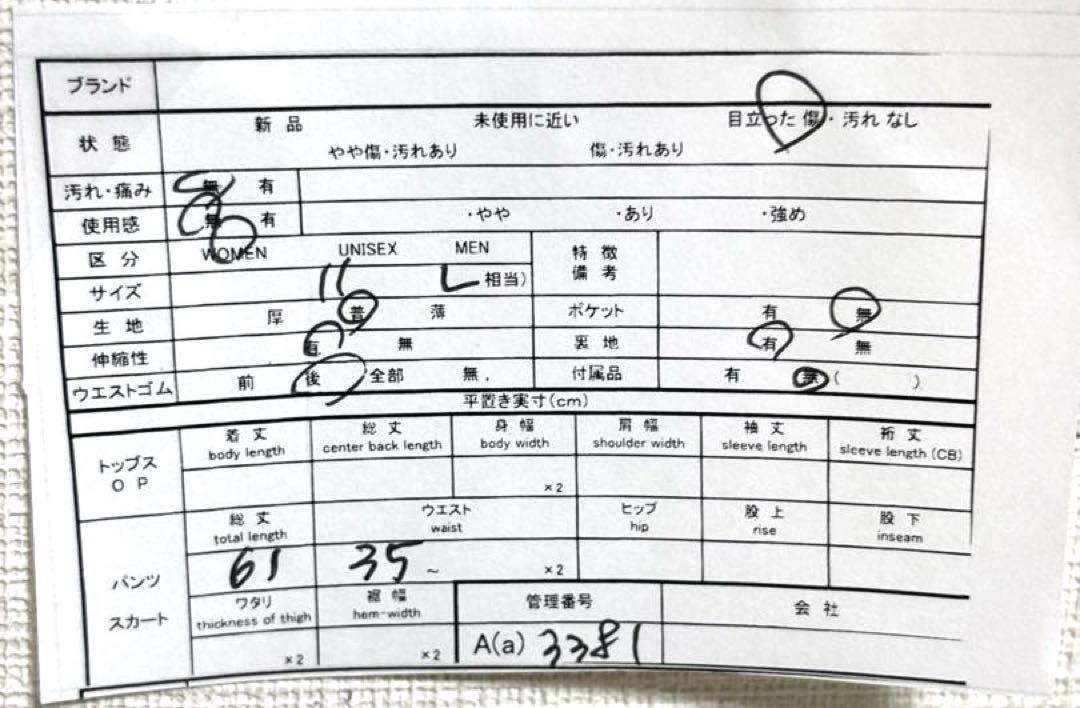 ブランド
状態 新品 未使用に近い 目立った傷・汚れなし
やや傷・汚れあり 傷・汚れあり
汚れ・痛み 無 有
使用感 無 有 ・やや ・あり ・強め
区分 WOMEN UNISEX MEN 特徴備考
サイズ 11 L 相当)
生地 厚 普 薄 ポケット 有 無
伸縮性 有 無 裏地 有 無
ウエストゴム 前 後 全部 無, 付属品 有 無 ( )
平置き実寸(cm)
トップス OP 着丈 総丈 身幅 肩幅 袖丈 裄丈
body length center back length body width shoulder width sleeve length sleeve length (CB)
×2
パンツ スカート 総丈 ウエスト ヒップ 股上 股下
total length waist hip rise inseam
61 35 ~ ×2
ワタリ 裾幅 管理番号 会社
thickness of thigh hem-width
×2 ×2 A(a) 3381